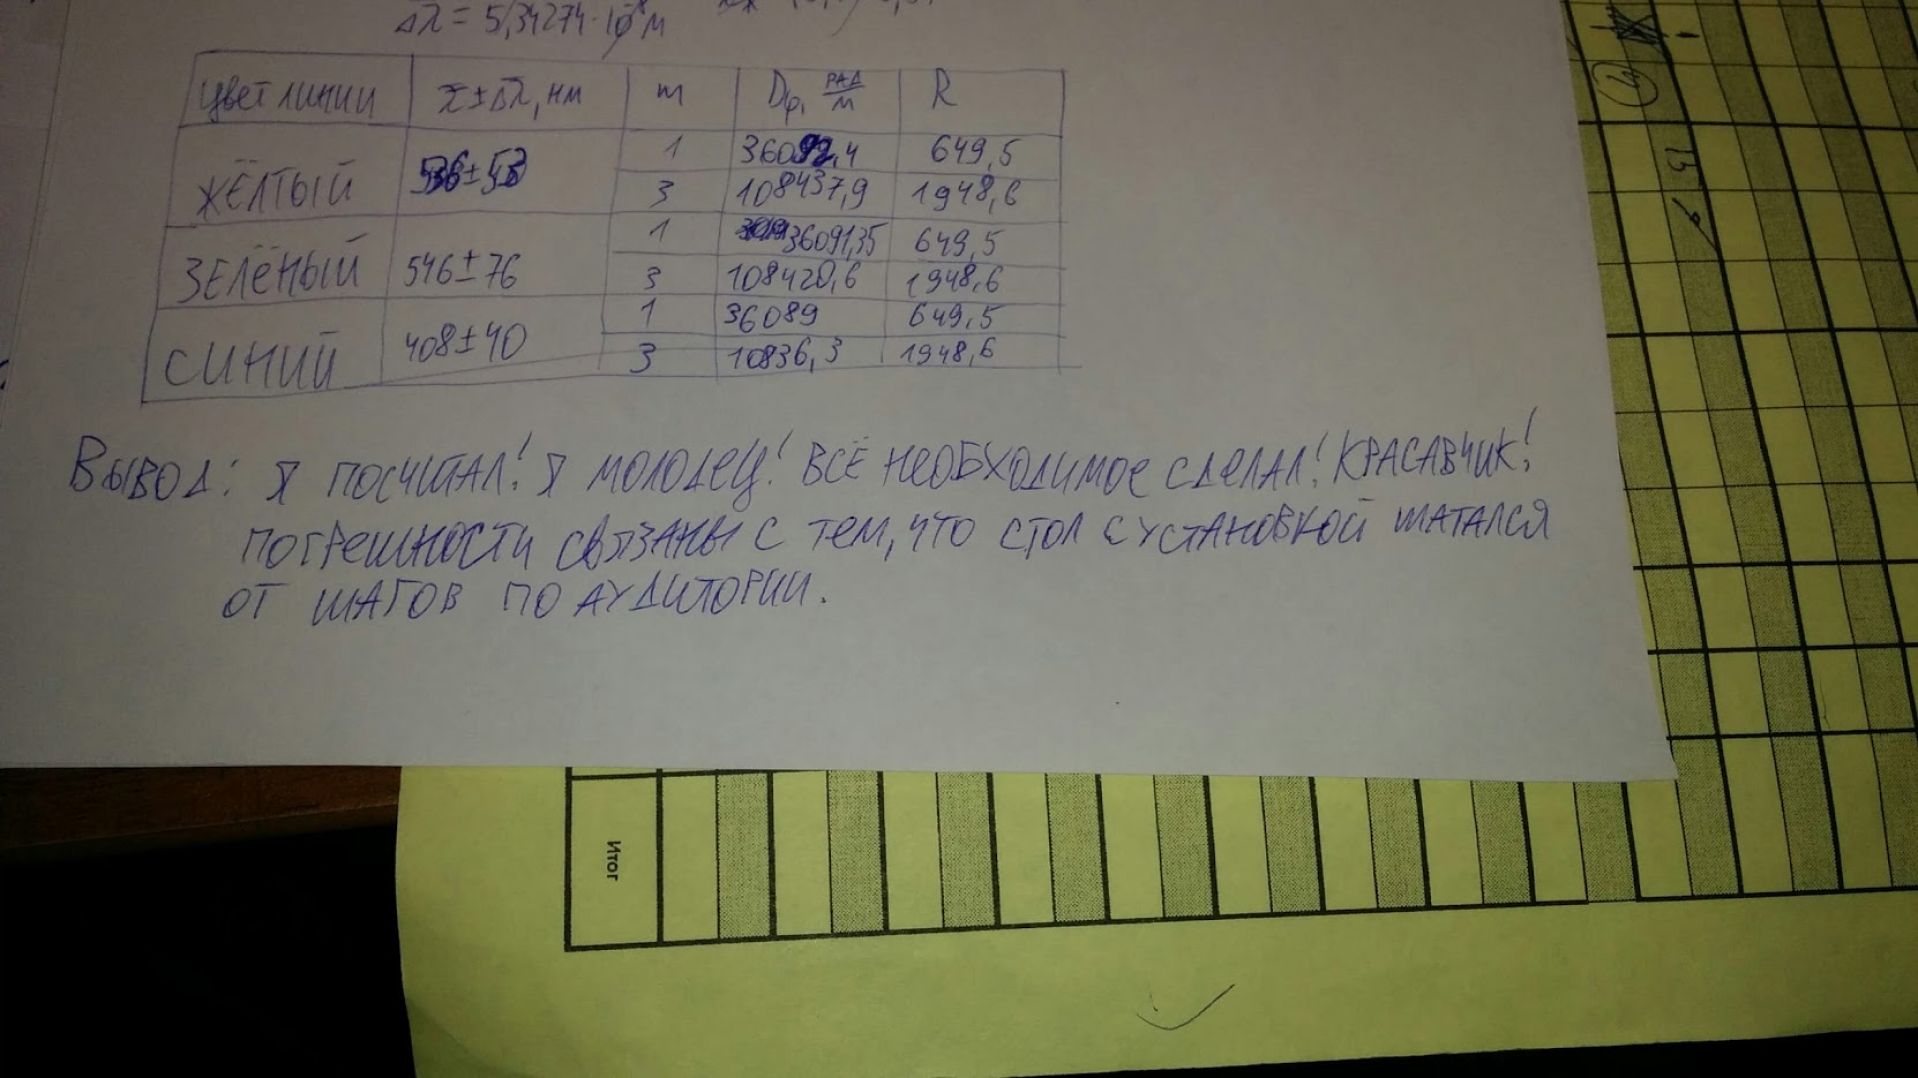 Δλ = 5,34274·10⁻⁸ м
Цвет линии | λ̄ ± Δλ̄, нм | m | Dφ, рад/м | R
Жёлтый | 1 | 36092,4 | 649,5
3 | 108437,9 | 1948,6
Зелёный | 546 ± 76 | 1 | 36091,35 | 649,5
3 | 108420,6 | 1948,6
Синий | 408 ± 40 | 1 | 36089 | 649,5
3 | 10836,3 | 1948,6
Вывод: Я посчитал! Я молодец! Всё необходимое сделал! Красавчик!
Погрешности связаны с тем, что стол с установкой шатался
от шагов по аудитории.
Итог